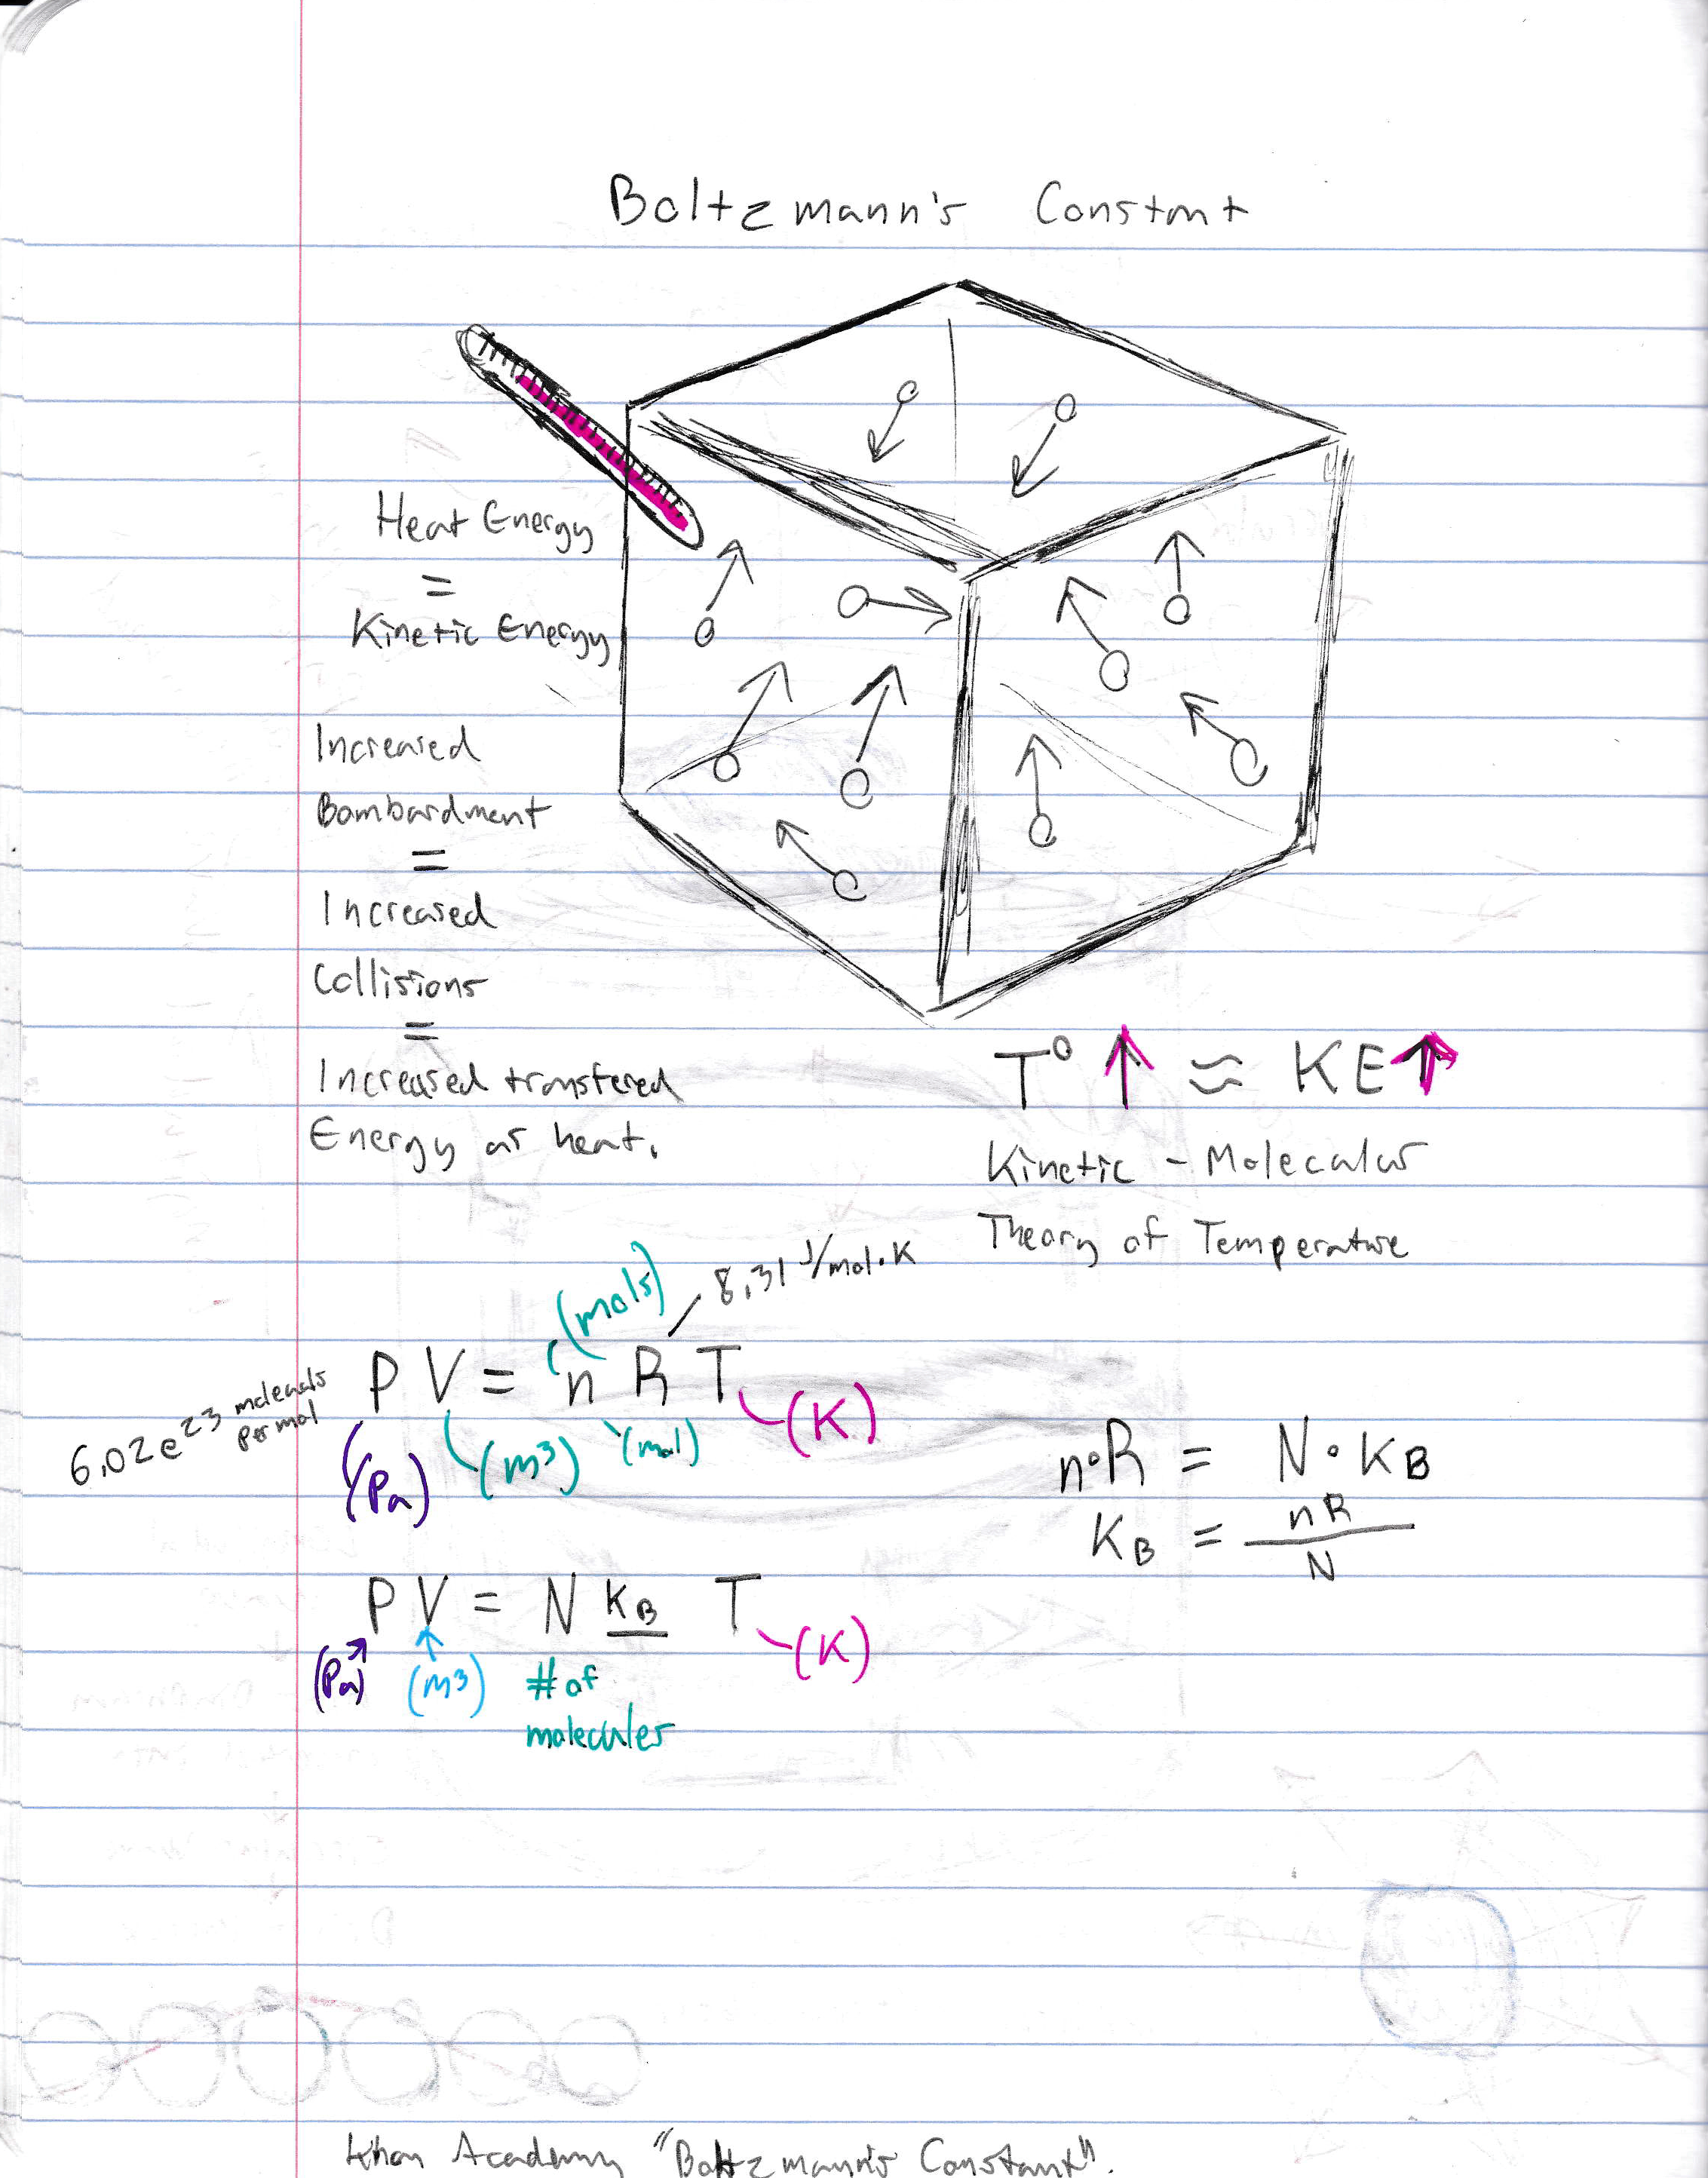 Boltzmann's Constant
Heat Energy
=
Kinetic Energy
Increased
Bombardment
=
Increased
Collisions
=
Increased transfered
Energy as heat.
T° ↑ ≈ KE ↑
Kinetic - Molecular
Theory of Temperature
(mols)
8.31 J/mol·K
PV = nRT
6.02e²³ molecules
per mol
(Pa)
(m³)
(mol)
(K)
n·R = N·KB
KB = nR
N
PV = N KB T
(Pa)
(m³)
# of
molecules
(K)
Khan Academy "Boltzmann's Constant".